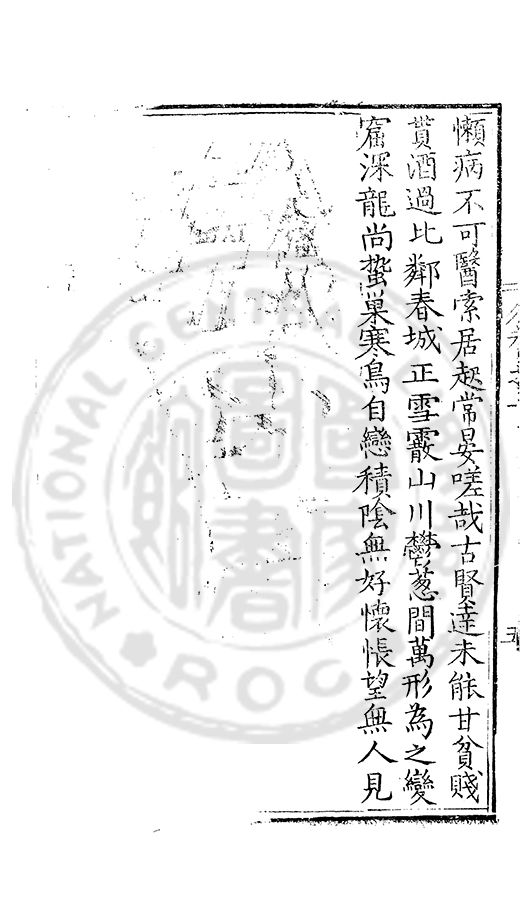 懶病不可醫索居起常晏嗟哉古賢達未能甘貧賤
貰酒過比鄰春城正雪霰山川鬱葱間萬形為之變
窟深龍尚蟄巢寒鳥自戀積陰無好懷悵望無人見
NATIONAL CENTRA
圖書
ROC